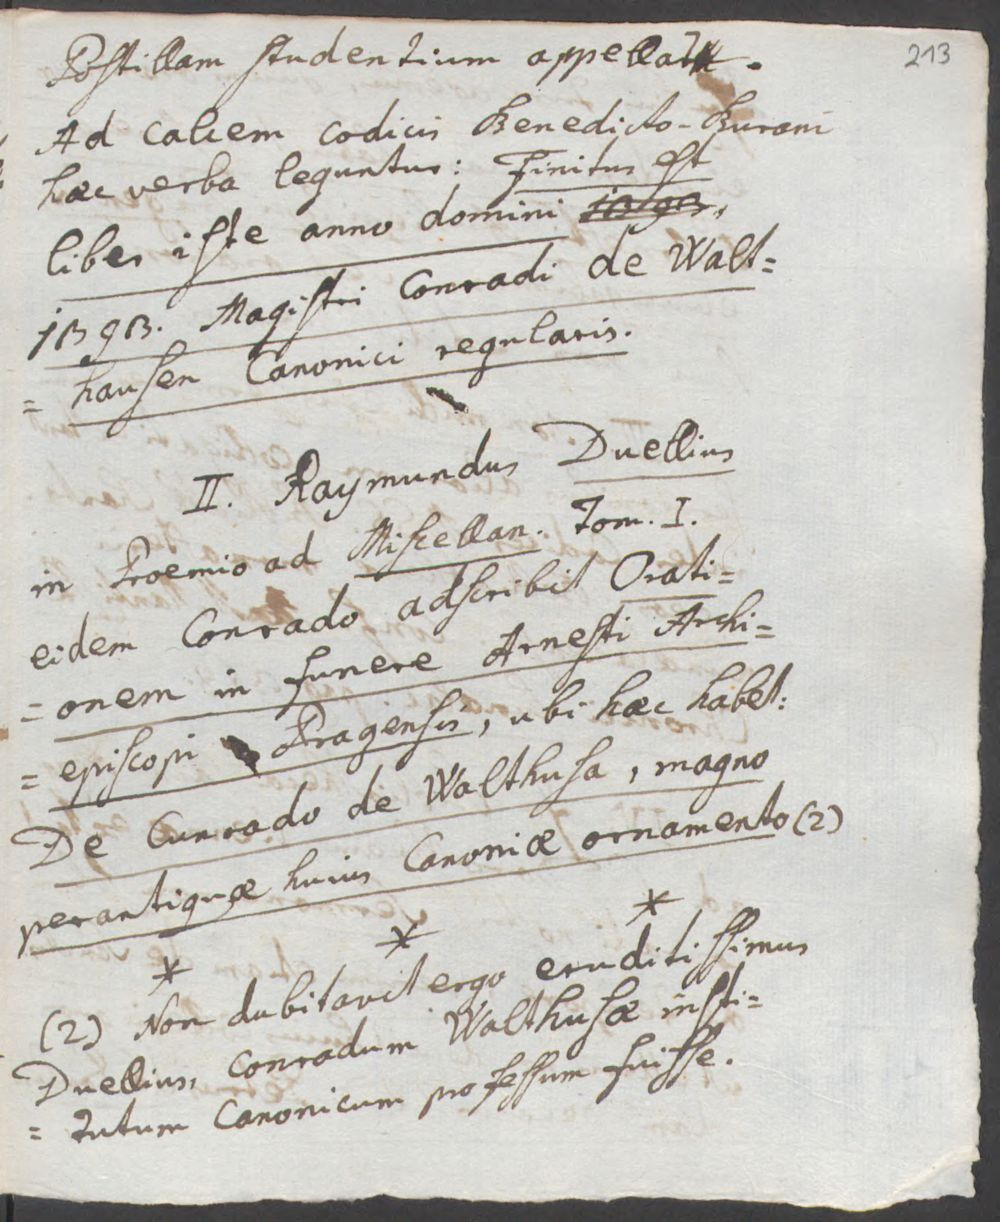 213
Postillam studentium appellat.
Ad calcem codicis Benedicto-Burani
hæc verba leguntur: Finitus est
liber iste anno domini
1393. Magistri Conradi de Walt=
= hausen Canonici regularis.
II. Raymundus Duellius
in Proemio ad Miscellan. Tom. I.
eidem Conrado adscribit Orati=
= onem in funere Arnesti Archi=
= episcopi Pragensis, ubi hæc habet:
De Cunrado de Walthusa, magno
perantiquæ huius Canoniæ ornamento (2)
* * *
(2) Non dubitavit ergo eruditissimus
Duellius, Conradum Walthusæ insti=
= tutum Canonicum professum fuisse.